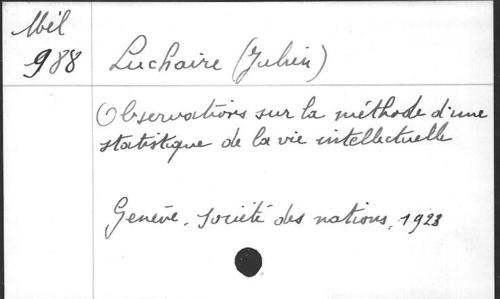 Mél
988
Luchaire (Julien)
Observations sur la méthode d'une
statistique de la vie intellectuelle
Genève, Société des nations, 1923